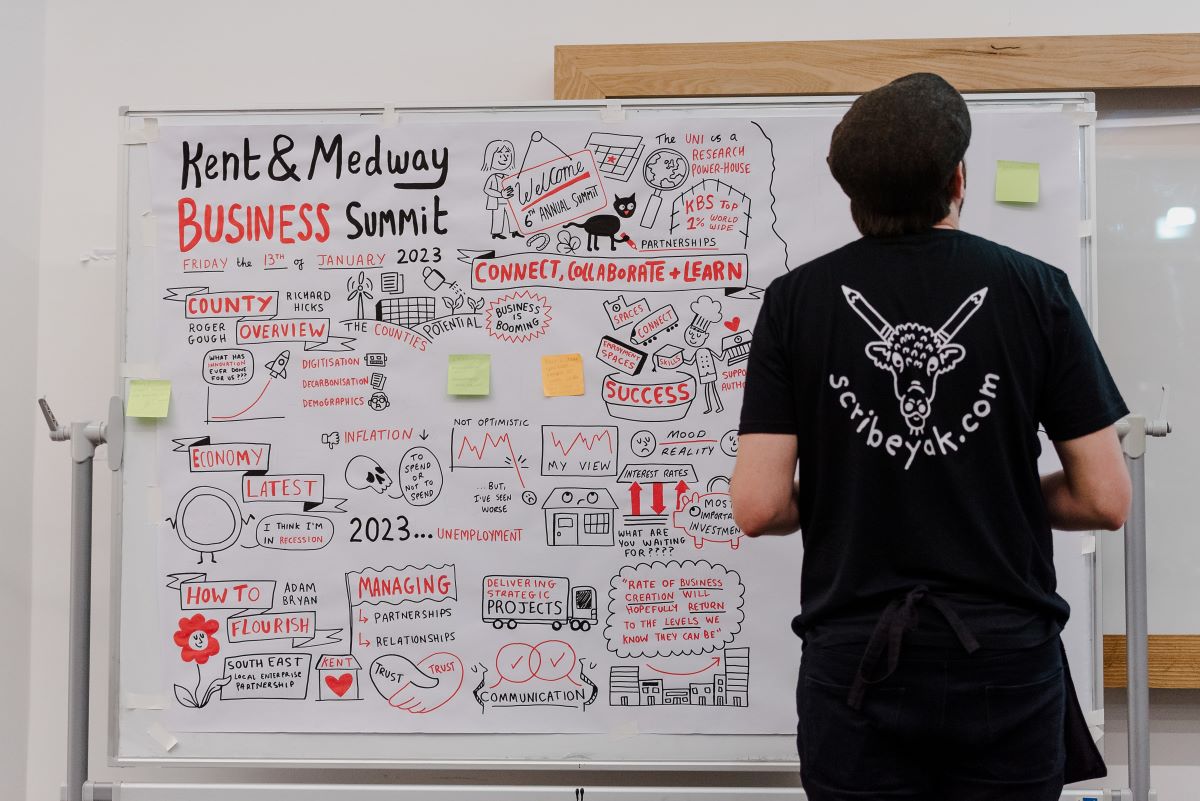 Kent & Medway
BUSINESS SUMMIT
FRIDAY the 13TH of JANUARY 2023
Welcome
6TH ANNUAL SUMMIT
The UNI is a
RESEARCH
POWER-HOUSE
KBS TOP
1% WORLD
WIDE
PARTNERSHIPS
CONNECT, COLLABORATE + LEARN
COUNTY
OVERVIEW
RICHARD
HICKS
ROGER
GOUGH
THE COUNTIES
POTENTIAL
BUSINESS
IS
BOOMING
WHAT HAS
INNOVATION
EVER DONE
FOR US???
DIGITISATION
DECARBONISATION
DEMOGRAPHICS
SPACES
CONNECT
EMPLOYMENT
SPACES
SKILLS
SUCCESS
ECONOMY
LATEST
INFLATION
TO
SPEND
OR
NOT TO
SPEND
NOT OPTIMISTIC
...BUT,
I'VE SEEN
WORSE
MY VIEW
MOOD
REALITY
INTEREST RATES
WHAT ARE
YOU WAITING
FOR????
MOST
INVESTMEN
I THINK I'M
IN RECESSION
2023... UNEMPLOYMENT
HOW TO
FLOURISH
ADAM
BRYAN
SOUTH EAST
LOCAL ENTERPRISE
PARTNERSHIP
KENT
MANAGING
PARTNERSHIPS
RELATIONSHIPS
TRUST
TRUST
DELIVERING
STRATEGIC
PROJECTS
COMMUNICATION
"RATE OF BUSINESS
CREATION WILL
HOPEFULLY RETURN
TO THE LEVELS WE
KNOW THEY CAN BE"
scribeyak.com